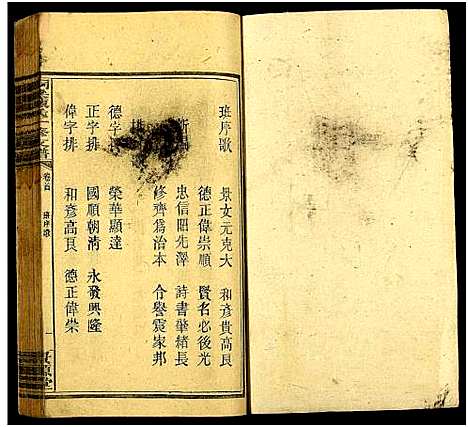 班序歌
景文元克大 和彥貴高良
德正偉崇順 賢名必後光
新
忠信昭先澤 詩書肇緒長
修齊爲治本 令譽震家邦
排
德字排 榮華顯達
正字排 國順朝清 永發興隆
偉字排 和彥高良 德正偉崇
卷首 班序歌 一